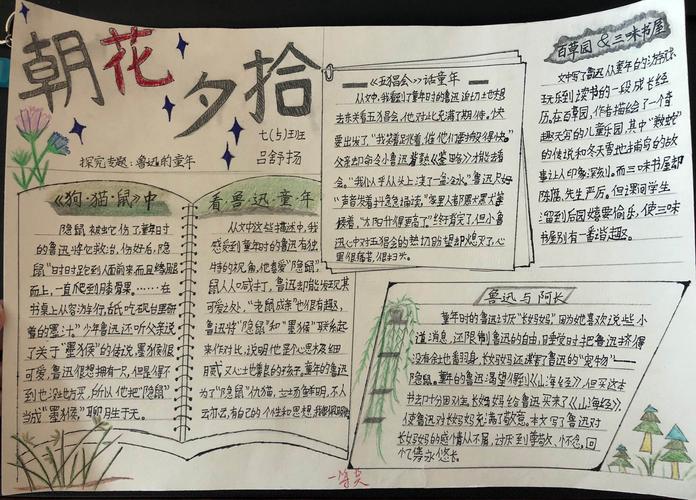 朝花夕拾
七(5)班
探究专题:鲁迅的童年
吕舒扬
《狗·猫·鼠》中
隐鼠被蛇伤了童年时
的鲁迅将它救治,伤好后,隐
鼠"时时跑到人面前来而且缘腿
而上,一直爬到膝髁。……在
书桌上从容功行,舐吃砚台里研
着的墨汁"少年鲁迅还听父亲说
了关于"墨猴"的传说,墨猴很
可爱,鲁迅很想拥有一只,但是得不
到也没地方买,所以他把"隐鼠"
当成"墨猴",聊月生于无。
看·鲁·迅·童·年
从文中这些描述中,我
感受到童年时的鲁迅有独
特的视角,他喜爱"隐鼠",
鼠人人喊打,鲁迅却能发现其
可爱之处,"老鼠成亲"也很有趣,
鲁迅将"隐鼠"和"墨猴"联系起
来作对比,说明他是个心思极细
腻又心土也善良的孩子,童年的鲁迅
为了"隐鼠"仇猫,立场鲜明,不人
云亦云,有自己的个性和思想
《五猖会》话童年
从文中,我看到了童年时的鲁迅迫切地想
去东关看五猖会,他对此充满了期待。快
要出发了,"我笑着跳着,催他们要搬得快。"
父亲却命令小鲁迅
会。"我似乎从头上浇了一盆冷水。"鲁迅只好
心里很痛苦,很扫兴。
百草园 & 三味书屋
文中写了鲁迅从童年的游戏
玩乐到读书的一段成长经
历。在百草园,作者描绘了一个奇
趣无穷的儿童乐园,其中"美女蛇"
的传说和冬天雪地捕鸟的故
事让人印象深刻。而三味书屋部
陈陋,先生严厉。但课间学生
溜到后园嬉耍偷乐,使三味
书屋别有一番谐趣。
鲁迅与阿长
童年时的鲁迅讨厌"长妈妈",因为她喜欢说些小
道消息,还限制鲁迅的自由,睡觉时把鲁迅挤得
没有余地翻身,长妈妈还谋害了鲁迅的"宠物"——
隐鼠。童年的鲁迅渴望得到《山海经》,但买这本
书却十分困难,长妈妈给鲁迅买来了《山海经》,
使鲁迅对长妈妈充满了敬意。本文写了鲁迅对
长妈妈的感情从不屑,讨厌到尊敬,怀念,回
忆情永悠长。
一等奖